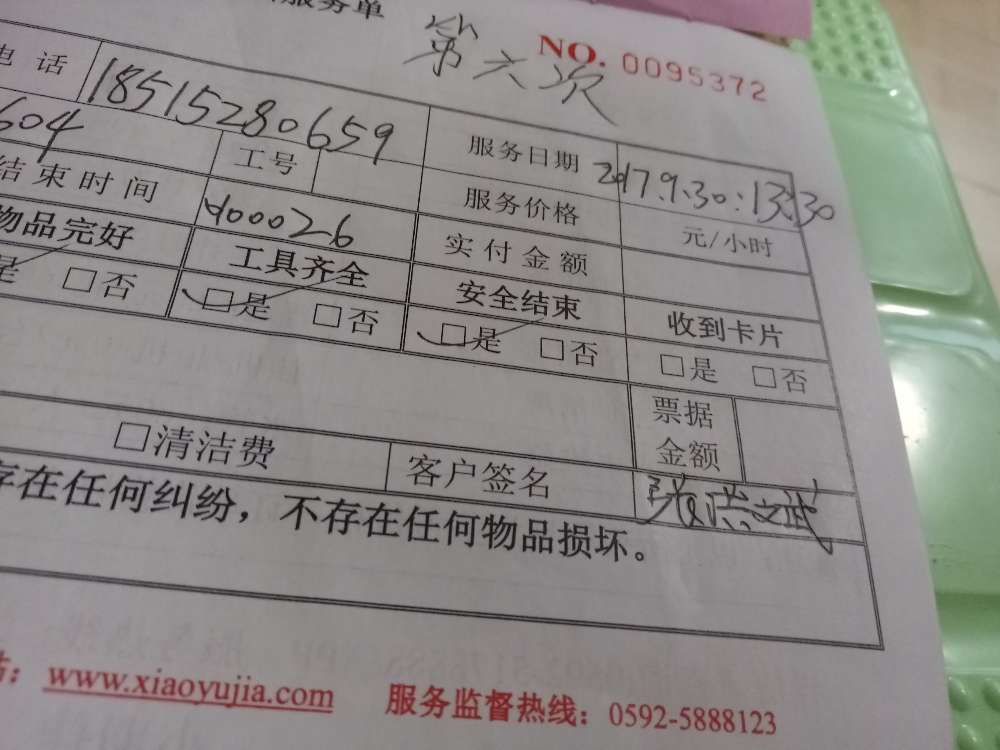 服务单 第六次 NO. 0095372
电话 18515280659 服务日期 2017.9.30:13:30
604 工号 服务价格 元/小时
结束时间 400026 实付金额
物品完好 工具齐全 安全结束 收到卡片
是 □否 □是 □否 □是 □否 □是 □否
票据金额
□清洁费 客户签名
存在任何纠纷，不存在任何物品损坏。
www.xiaoyujia.com 服务监督热线：0592-5888123